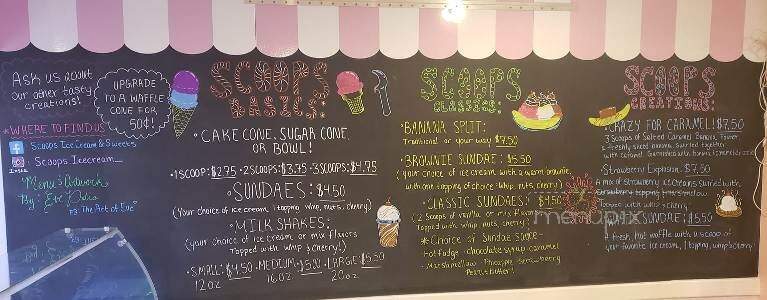 Ask us about
our other tasty
creations!
UPGRADE
TO A WAFFLE
CONE FOR
50¢!
*WHERE TO FIND US
Scoops Ice Cream & Sweets
Scoops Icecream_
Menu & Artwork
By: Eve
FB: The Art of Eve
SCOOPS
BASICS:
CAKE CONE, SUGAR CONE,
OR BOWL!
1 SCOOP: $2.75 2 SCOOPS: $3.75 3 SCOOPS: $4.75
SUNDAES: $4.50
(Your choice of ice cream, 1 topping, whip, nuts, cherry)
MILK SHAKES:
(your choice of ice cream or mix flavors
Topped with whip & cherry!)
SMALL: $4.50 MEDIUM: $5.00 LARGE: $5.50
12oz 16oz. 20oz
SCOOPS
CLASSICS:
BANANA SPLIT:
Traditional or your way $7.50
BROWNIE SUNDAE: $5.50
(your choice of ice cream with a warm brownie
with one topping of choice, whip, nuts, cherry)
CLASSIC SUNDAES: $4.50
(2 Scoops of vanilla or mix flavor
Topped with whip, nuts, cherry)
* Choice of Sundae Sauce -
Hot Fudge - chocolate syrup - caramel
Marshmallow - Pineapple - Strawberry
Peanut butter!
SCOOPS
CREATIONS:
CRAZY FOR CARAMEL! $7.50
3 Scoops of Salted Caramel
freshly sliced banana, swirled together
with caramel
Strawberry Explosion: $7.50
A mix of strawberry ice creams swirled with
strawberry topping
Topped with whip & cherry
SUNDAE: $5.50
A fresh, hot waffle with a scoop of
your favorite ice cream, 1 topping, whip & cherry!
menupix